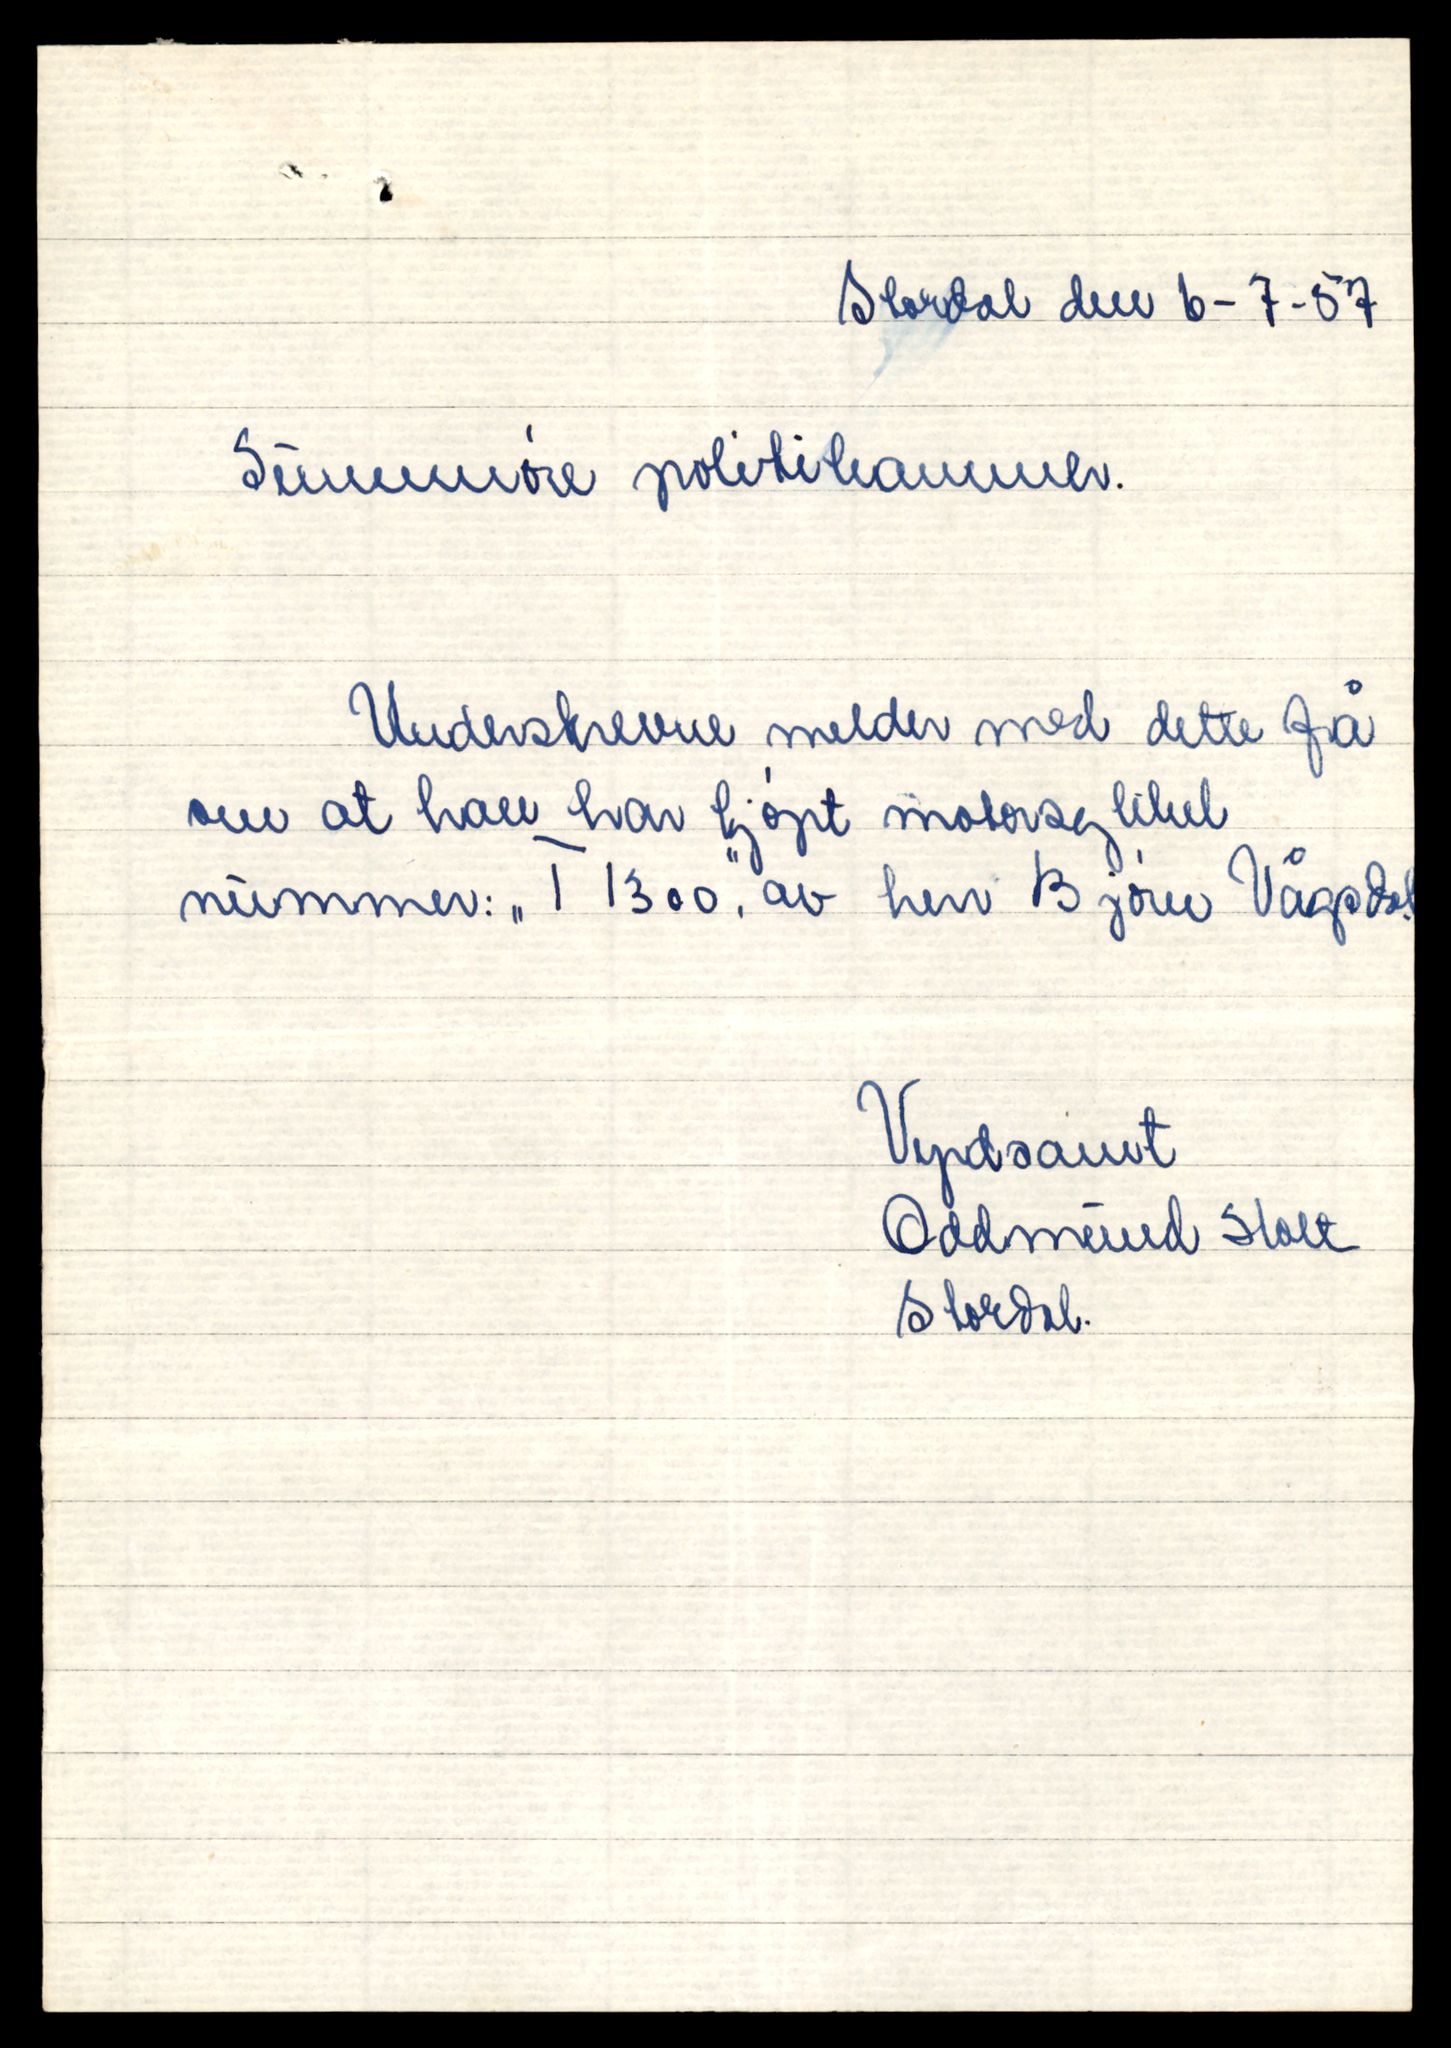 Stordal den 6-7-57
Sunnmöre politikammer.
Underskrevne melder med dette frå
om at han har kjöpt motorsykkel
nummer: „T 1300". av herr Björn Vågsdal.
Vyrdsamt
Oddmund Holt
Stordal.